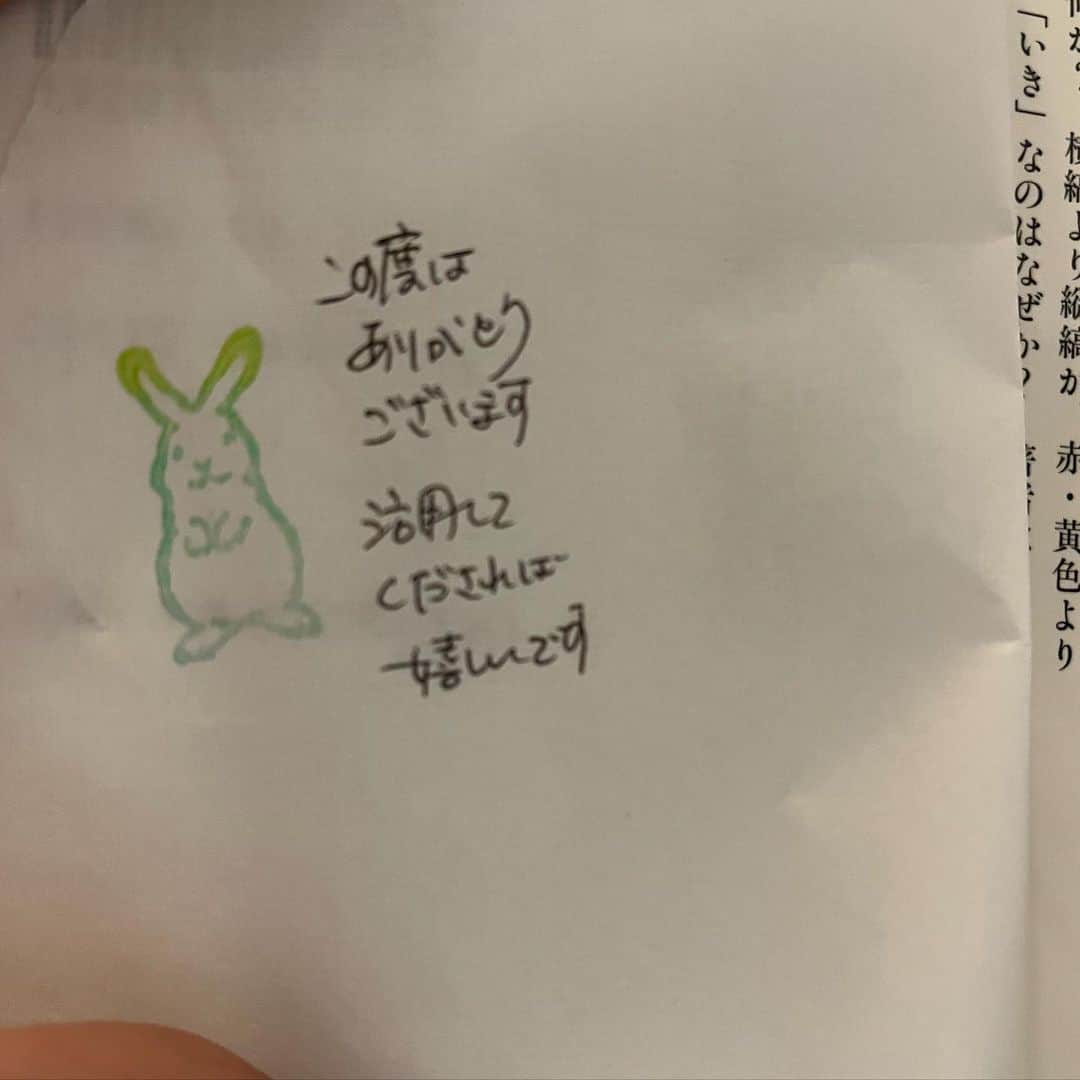 この度は
ありがとう
ございます
活用して
くだされば
嬉しいです
横縞より縦縞が 赤・黄色より
「いき」なのはなぜか?